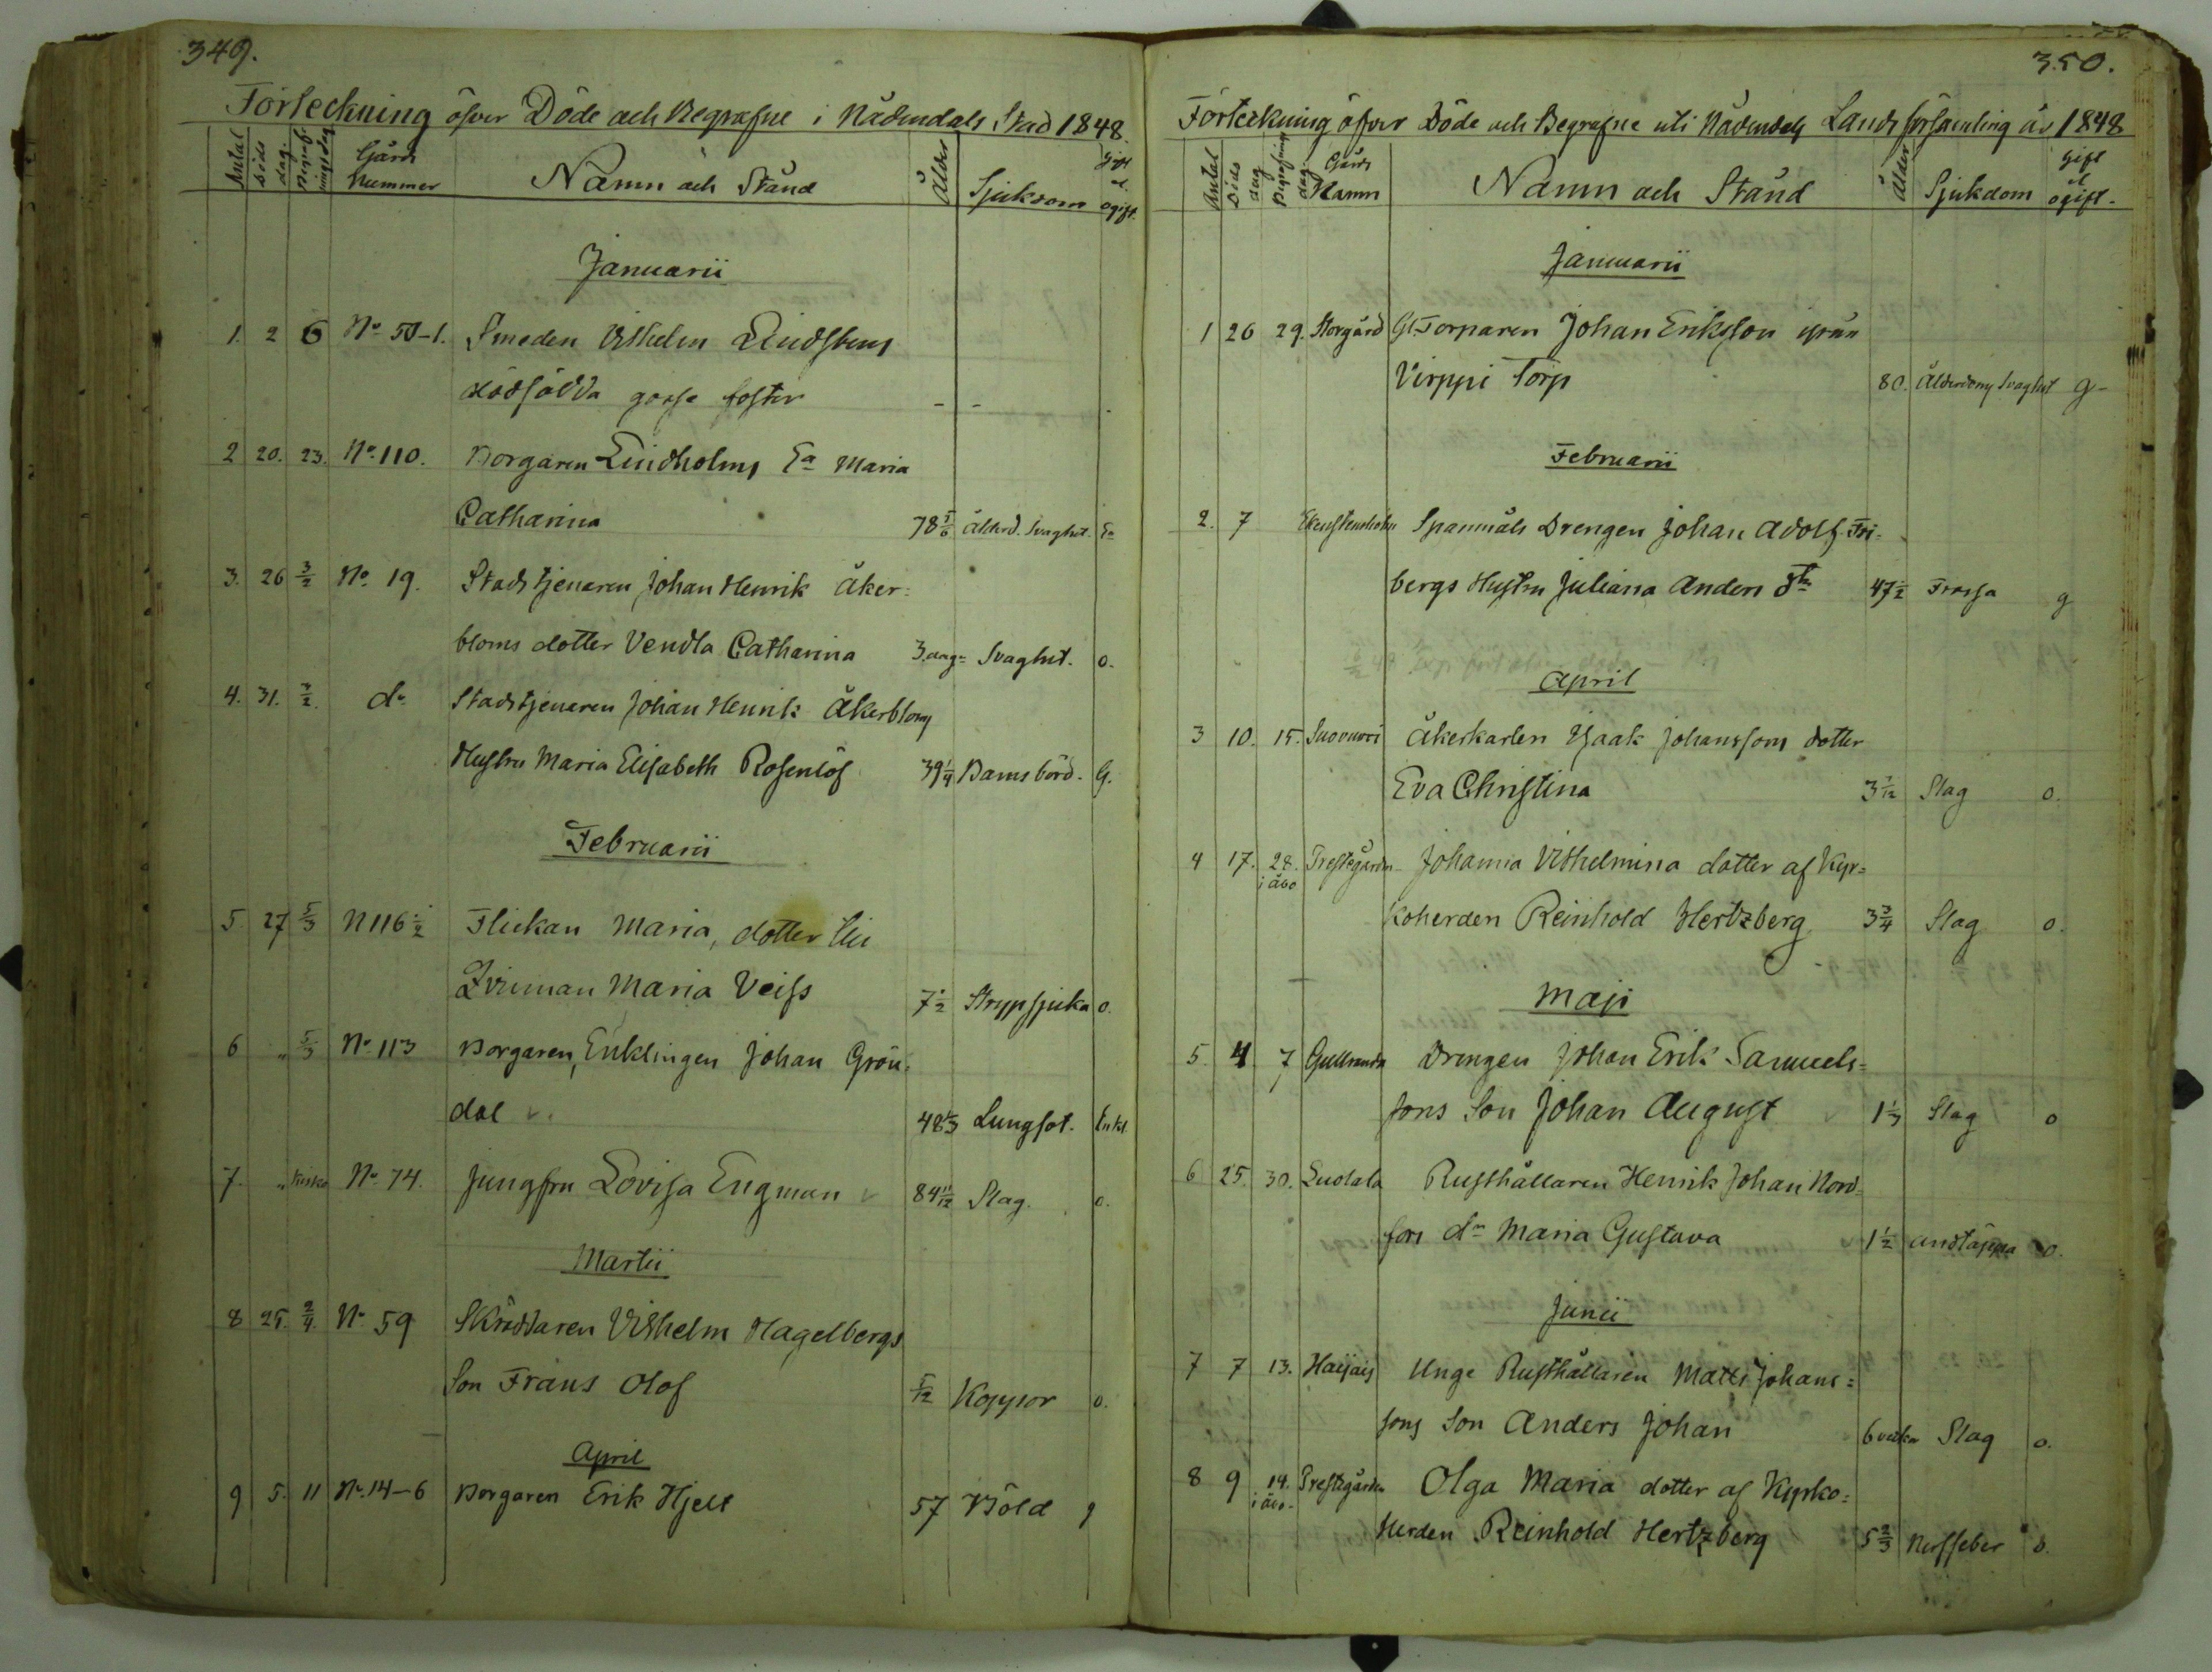 349.
Förteckning öfver Döde och Begrafne i Nådendals Stad 1848
Antal Döds dag. Begrafningsdag Gårds Nummer Namn och Stånd Ålder Sjukdom Gift el ogift.
Januarii
1. 2 6 No 50-1. Smeden Vilhelm Lindstens
dödfödda gosse foster - - -
2 20. 23. No 110. Borgaren Lindholms Ea Maria
Catharina 78 5/6 Ålderd. Svaghet. Ea
3. 26 3/2 No 19. Stadstjenaren Johan Henrik Åker=
bloms dotter Vendla Catharina 3 dag= Svaghet. o.
4. 31. 3/2. do Stadstjenaren Johan Henrik Åkerbloms
Hustru Maria Elisabeth Rosenlöf 39 1/4 Barnsbörd. G.
Februarii
5. 27 5/3 N 116 1/2 Flickan Maria, dotter till
Qvinnan Maria Veiss 7 1/2 Strypsjuka o.
6 " 5/3 No 113 Borgaren, Enklingen Johan Grön=
dal 48 1/3 Lungsot. Enkl.
7. " No 74. Jungfru Lovisa Engman 84 11/12 Slag. o.
Martii
8 25. 2/4. No 59 Skräddaren Vilhelm Hagelbergs
Son Frans Olof 5/12 Koppor o.
April
9 5. 11 No 14-6 Borgaren Erik Hjelt 57 Böld g
350.
Förteckning öfver Döde och Begrafne uti Nådendals Landsförsamling år 1848
Antal Döds dag Begrafnings dag Gårds Namn Namn och Stånd Ålder Sjukdom Gift el ogift.
Januarii
1 26 29. Storgård Gl. Torparen Johan Eriksson ifrån
Virppi Torp 80. Ålderdoms Svaghet g-
Februarii
2. 7 Spanmåls Drengen Johan Adolf Fri=
bergs Hustru Juliana Anders Dtr 47 1/2 Frossa g
April
3 10. 15. Suovuori Åkerkarlen Isaak Johanssons dotter
Eva Christina 3 1/12 Slag o.
4 17. 28. i Åbo Prestegården Johanna Vilhelmina dotter af Kyr=
koherden Reinhold Hertzberg 3 3/4 Slag o.
Maji
5. 4 7 Gullranda Drengen Johan Erik Samuels=
sons Son Johan August 1 1/3 Slag o
6 25. 30. Luolala Rusthållaren Henrik Johan Nord=
fors dr Maria Gustava 1 1/2 andtäppa o.
Junii
7 7 13. Haijais Unge Rusthållaren Matts Johans=
sons Son Anders Johan 6 veckor Slag o.
8 9 14. i Åbo. Prestegården Olga Maria dotter af Kyrko=
herden Reinhold Hertzberg 5 2/3 Nerffeber o.